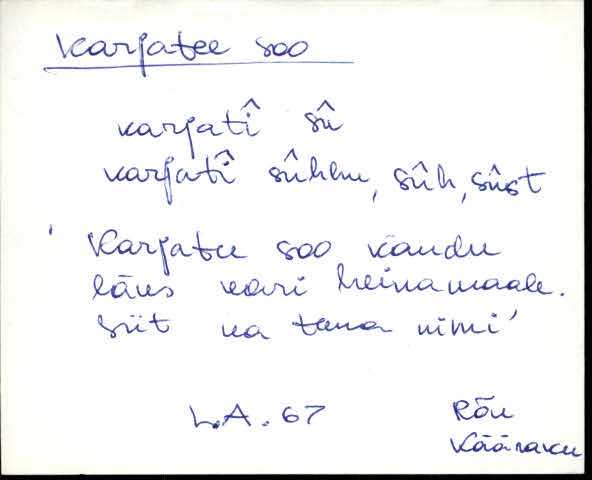 Karjatee soo
karjatî sû
karjatî sûhhu, sûh, sûst
'Karjatee soo kaudu
läks kari heinamaale.
Siit ka tema nimi'
L.A. 67 Rõu
Kääraku